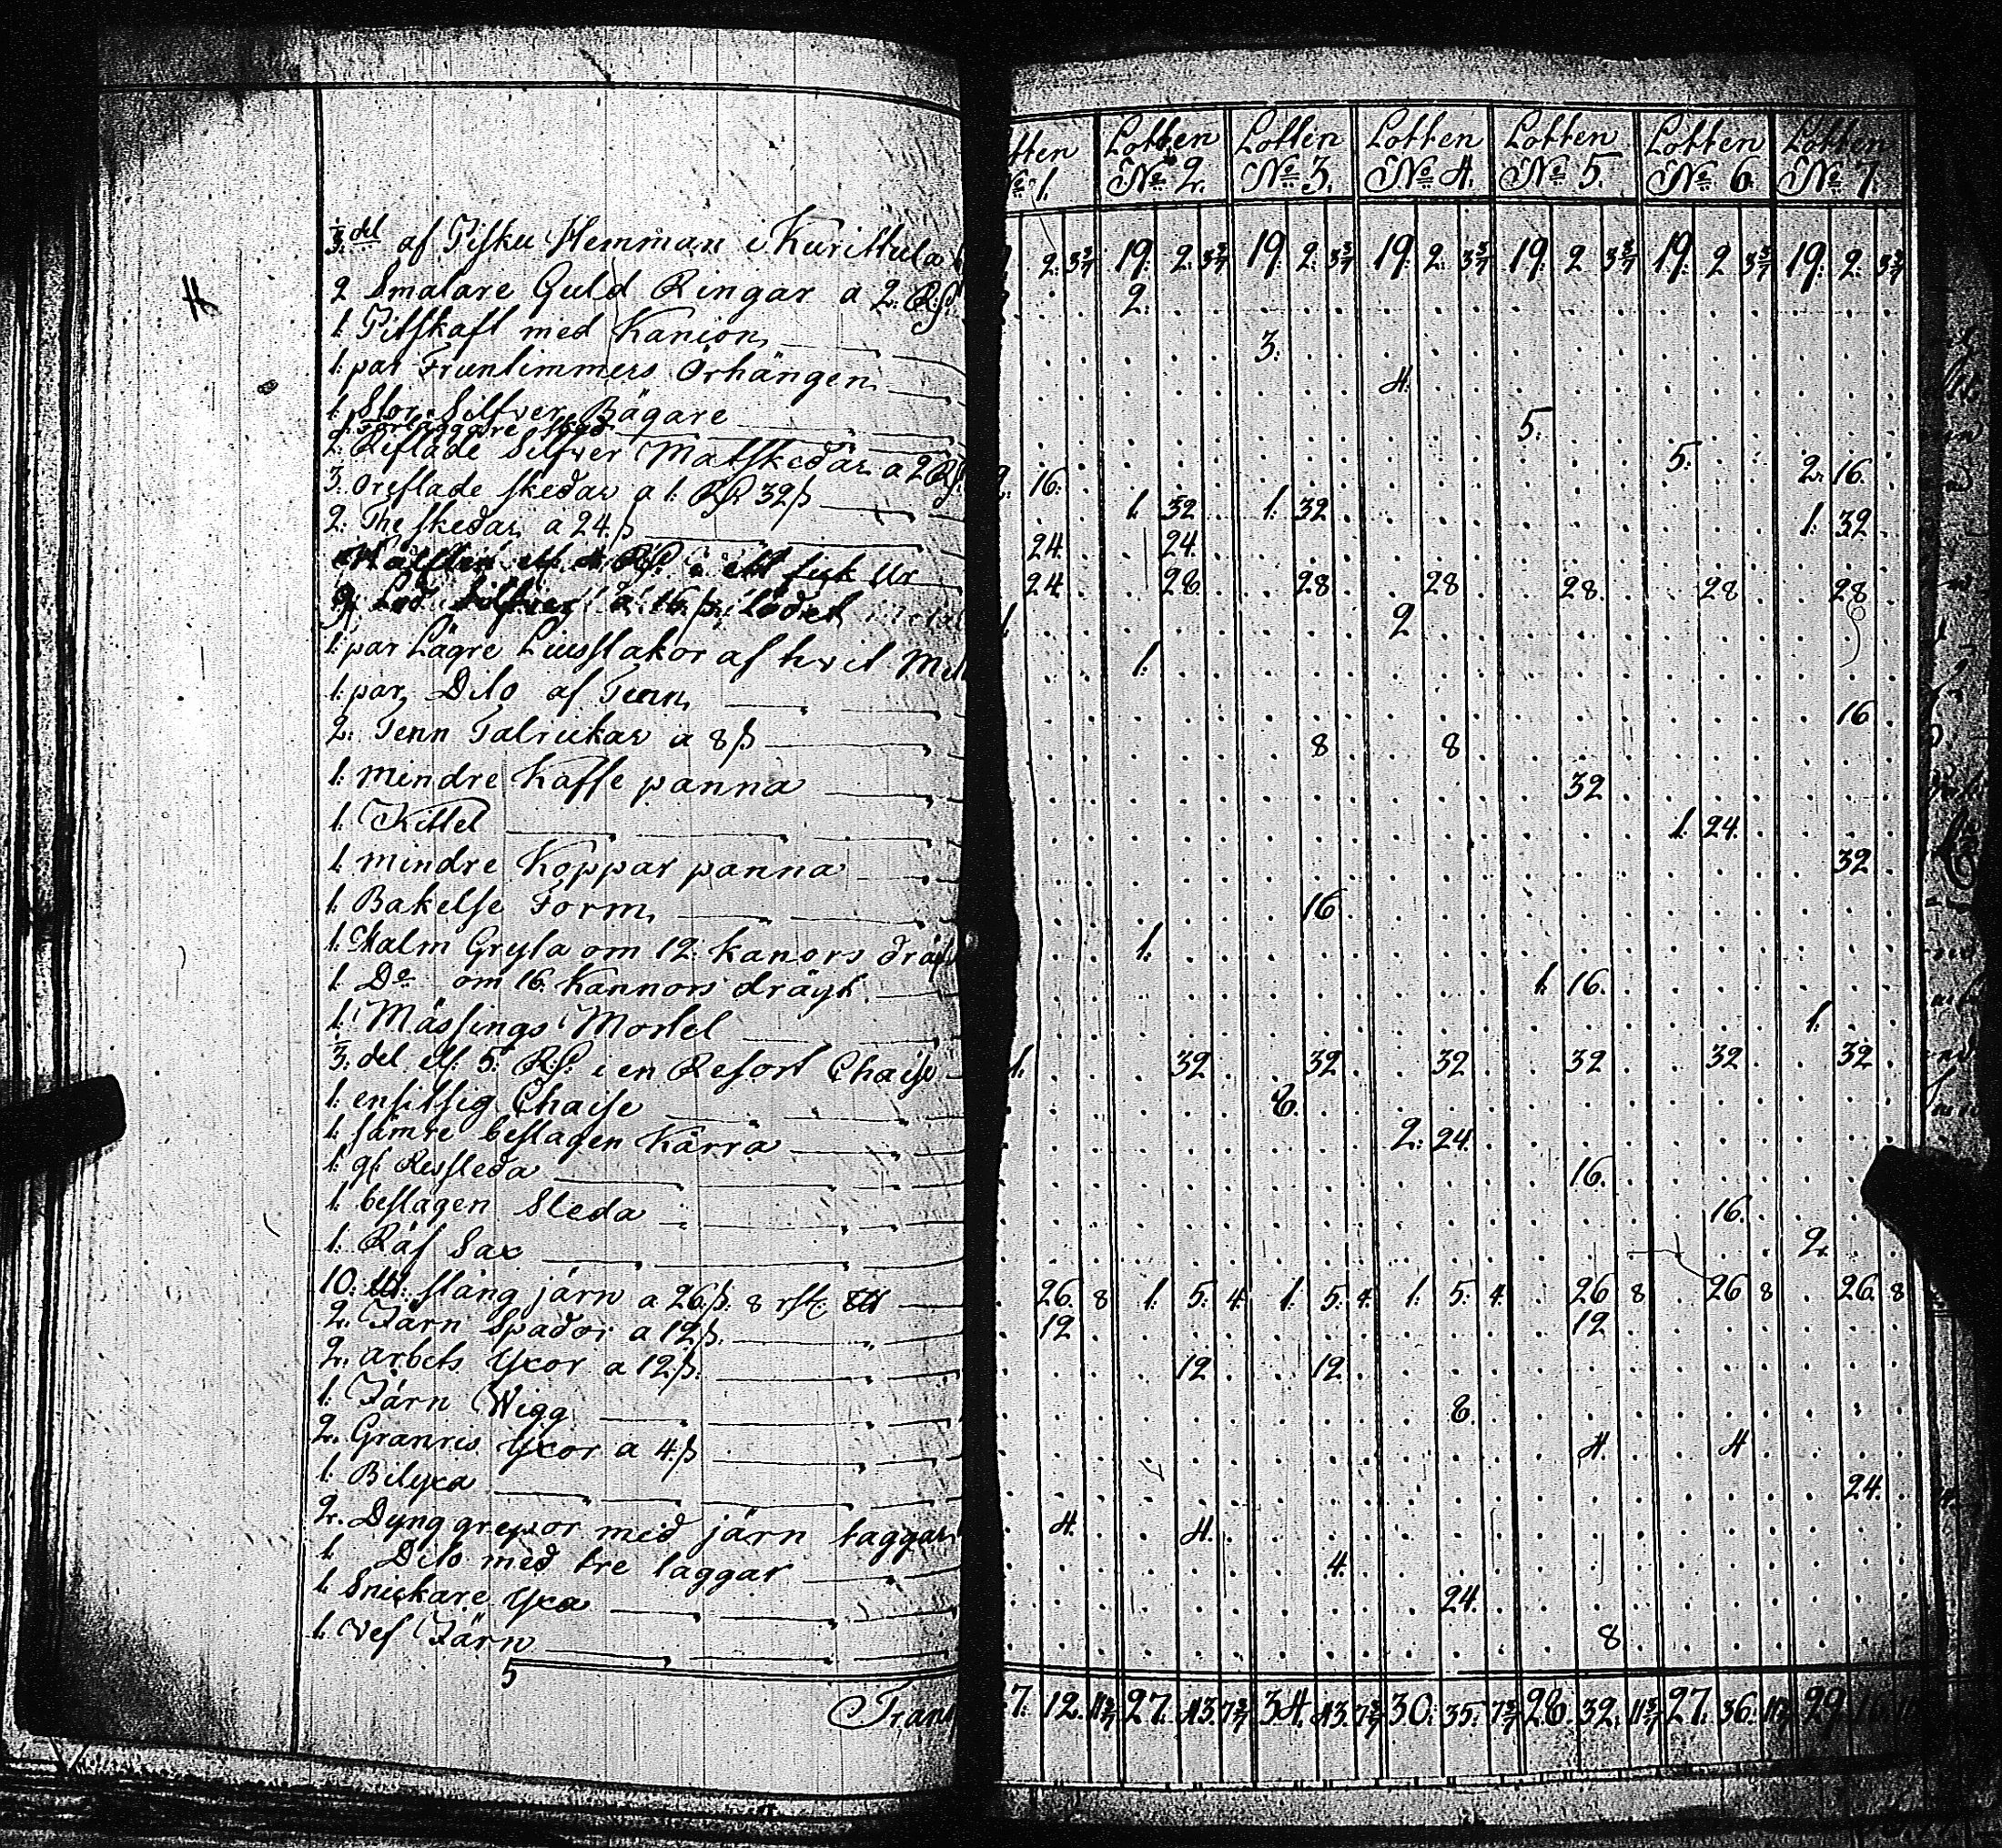 ⅓ del af Pisku Hemman i Kurittula
2 Smalare Guld Ringar a 2. Rd
1. Pitskaft med Kanion
1. par Fruntimmers Örhängen
1. Stor Silfver Bägare
1. Förläggare sked
2. Reflade Silfver Matskedar a 2 Rd
3. oreflade skedar a 1. Rd 32 ß
2. The skedar a 24 ß
Hälften ell. 4 Rd. i ett fick Ur
Lod Silfver a 16 ß. lodet
1. par Lägre Liusstakor af hvit
1. par Dito af Tenn
2. Tenn Talrickar a 8 ß
1. mindre Kaffe panna
1. Kittel
1. mindre Koppar panna
1. Bakelse Form
1. Malm Gryta om 12. Kanors
1. Do om 16. Kannors drägt
1. Mässings Mortel
⅓ del ell. 5. Rd. i en Resort Chaise
1. ensitsig Chaise
1. sämre beslagen Kärra
1. gl. Ressleda
1. beslagen Sleda
1. Räf Sax
10. stång järn a 26 ß. 8 rst.
2. Järn Spador a 12 ß.
2. arbets Yxor a 12 ß.
1. Järn Wigg
2. Granris Yxor a 4 ß
1. Bilyxa
2. Dyng grepor med järn taggar
1. Dito med tre taggar
1. Snickare Yxa
1. Vef Järn
5
Lotten Lotten Lotten Lotten Lotten Lotten
No 1. No 2. No 3. No 4. No 5. No 6. No 7.
2. 3 3/7 19. 2. 3 3/7 19. 2. 3 3/7 19. 2. 3 3/7 19. 2 3 3/7 19. 2 3 3/7 19. 2. 3 3/7
2.
3.
4.
5.
5.
2. 16. 2. 16.
1. 32 1. 32 1. 32
24. 24.
24. 28. 28 28 28. 28 28
1. 2
1.
16
8 8
32
1. 24.
32
16
1.
1. 16.
1.
1. 32 32 32 32 32 32
8.
2. 24.
16.
16.
2.
26. 8 1. 5. 4. 1. 5. 4. 1. 5. 4. 26 8 26 8 26. 8
12 12
12 12
8.
4. 4
24.
4. 4.
4.
24.
8
7. 12. 11 3/7 27. 43. 7 3/7 34. 43. 7 3/7 30. 35. 7 3/7 28. 32. 11 3/7 27. 36. 11 3/7 29